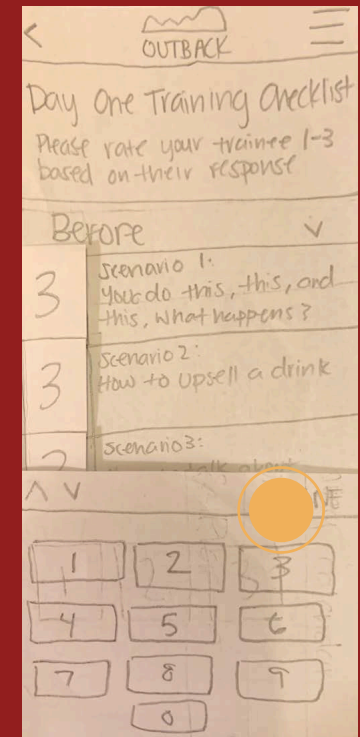 <
OUTBACK
Day One Training Checklist
Please rate your trainee 1-3
based on their response
Before
3
scenario 1:
You do this, this, and
this, what happens?
3
scenario 2:
How to upsell a drink
scenario 3:
talk about
1 2 3
4 5 6
7 8 9
0